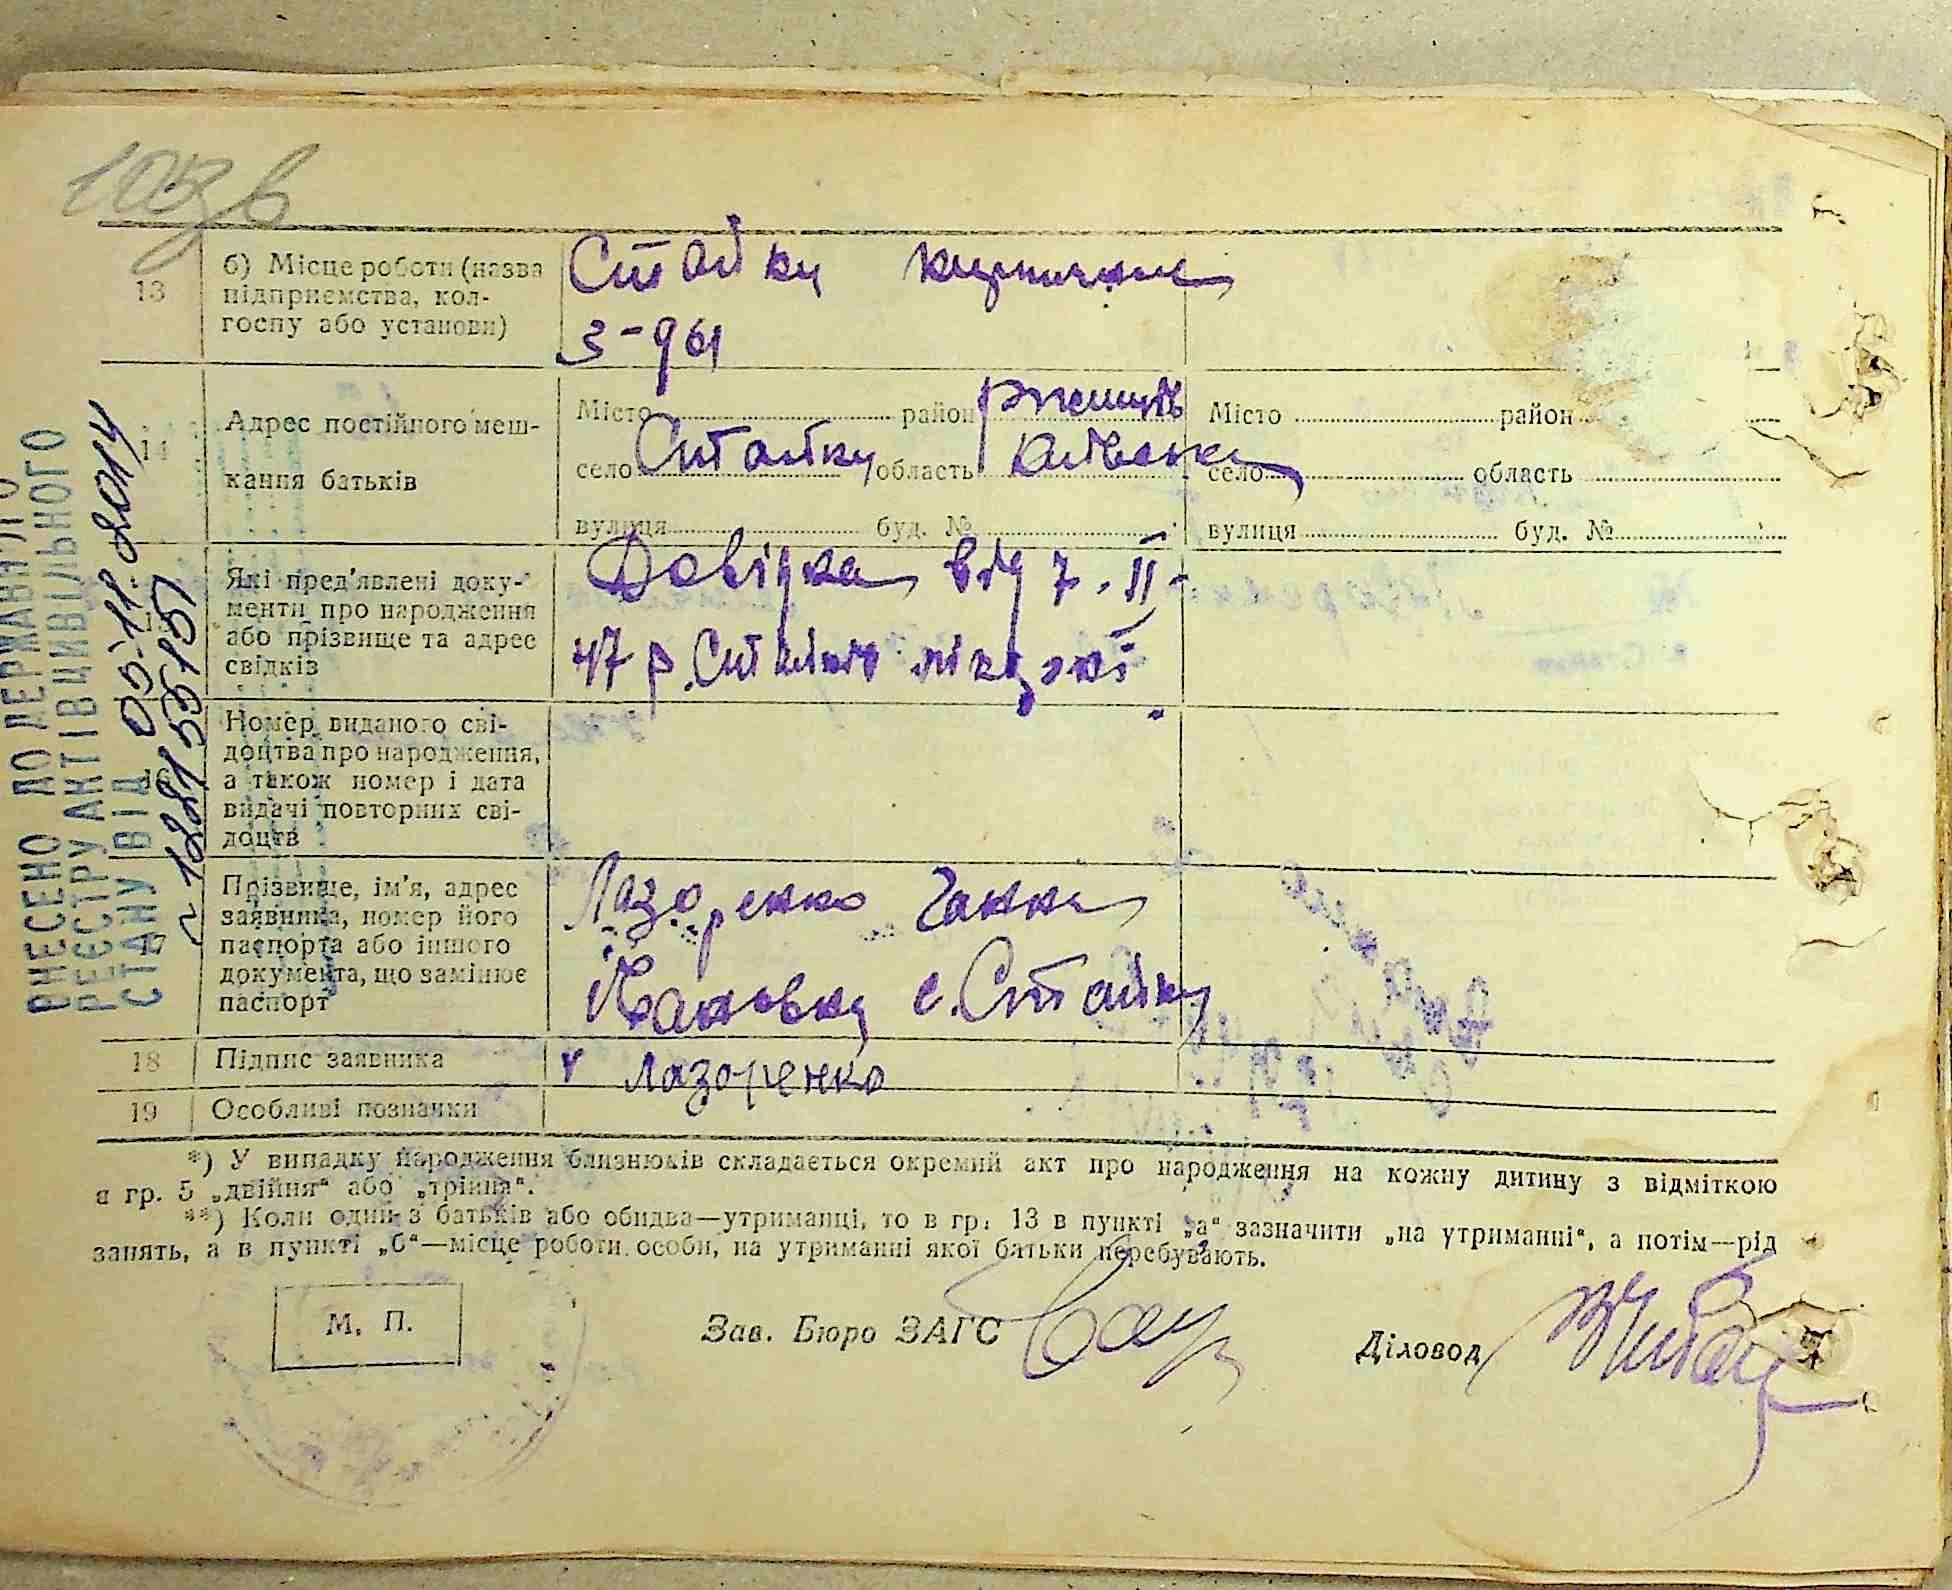 103 в
13
б) Місце роботи (назва
підприємства, кол-
госпу або установи)
Стайки
з-961
14
Адрес постійного меш-
кання батьків
Місто район Ржищів
село Стайки область Київська
вулиця буд. №
Місто район
село область
вулиця буд. №
15
Які пред'явлені доку-
менти про народження
або прізвище та адрес
свідків
Довідка від 7. II-
47 р.
16
Номер виданого сві-
доцтва про народження,
а також номер і дата
видачі повторних сві-
доцтв
17
Прізвище, ім'я, адрес
заявника, номер його
паспорта або іншого
документа, що замінює
паспорт
Лазоренко Ганна
с. Стайки
18
Підпис заявника
v Лазоренко
19
Особливі позначки
*) У випадку народження близнюків складається окремий акт про народження на кожну дитину з відміткою
в гр. 5 „двійня“ або „трійня“.
**) Коли один з батьків або обидва—утриманці, то в гр. 13 в пункті „а“ зазначити „на утриманні“, а потім—рід
занять, а в пункті „б“—місце роботи особи, на утриманні якої батьки перебувають.
М. П.
Зав. Бюро ЗАГС
Діловод
ВНЕСЕНО ДО ДЕРЖАВНОГО
РЕЄСТРУ АКТІВ ЦИВІЛЬНОГО
СТАНУ ВІД 05.11.2014